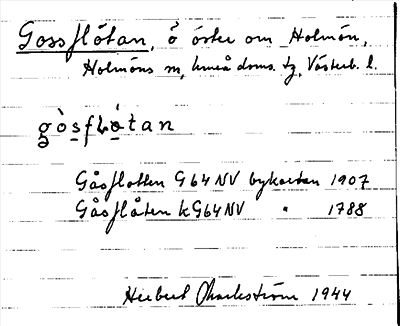 Gossflötan, ö öster om Holmön,
Holmöns sn, Umeå doms. tg, Västerb. l.
gòsflǿtan
Gåsflotten G64NV bykartan 1907
Gåsflåten kG64NV " 1788
Herbert Markström 1944